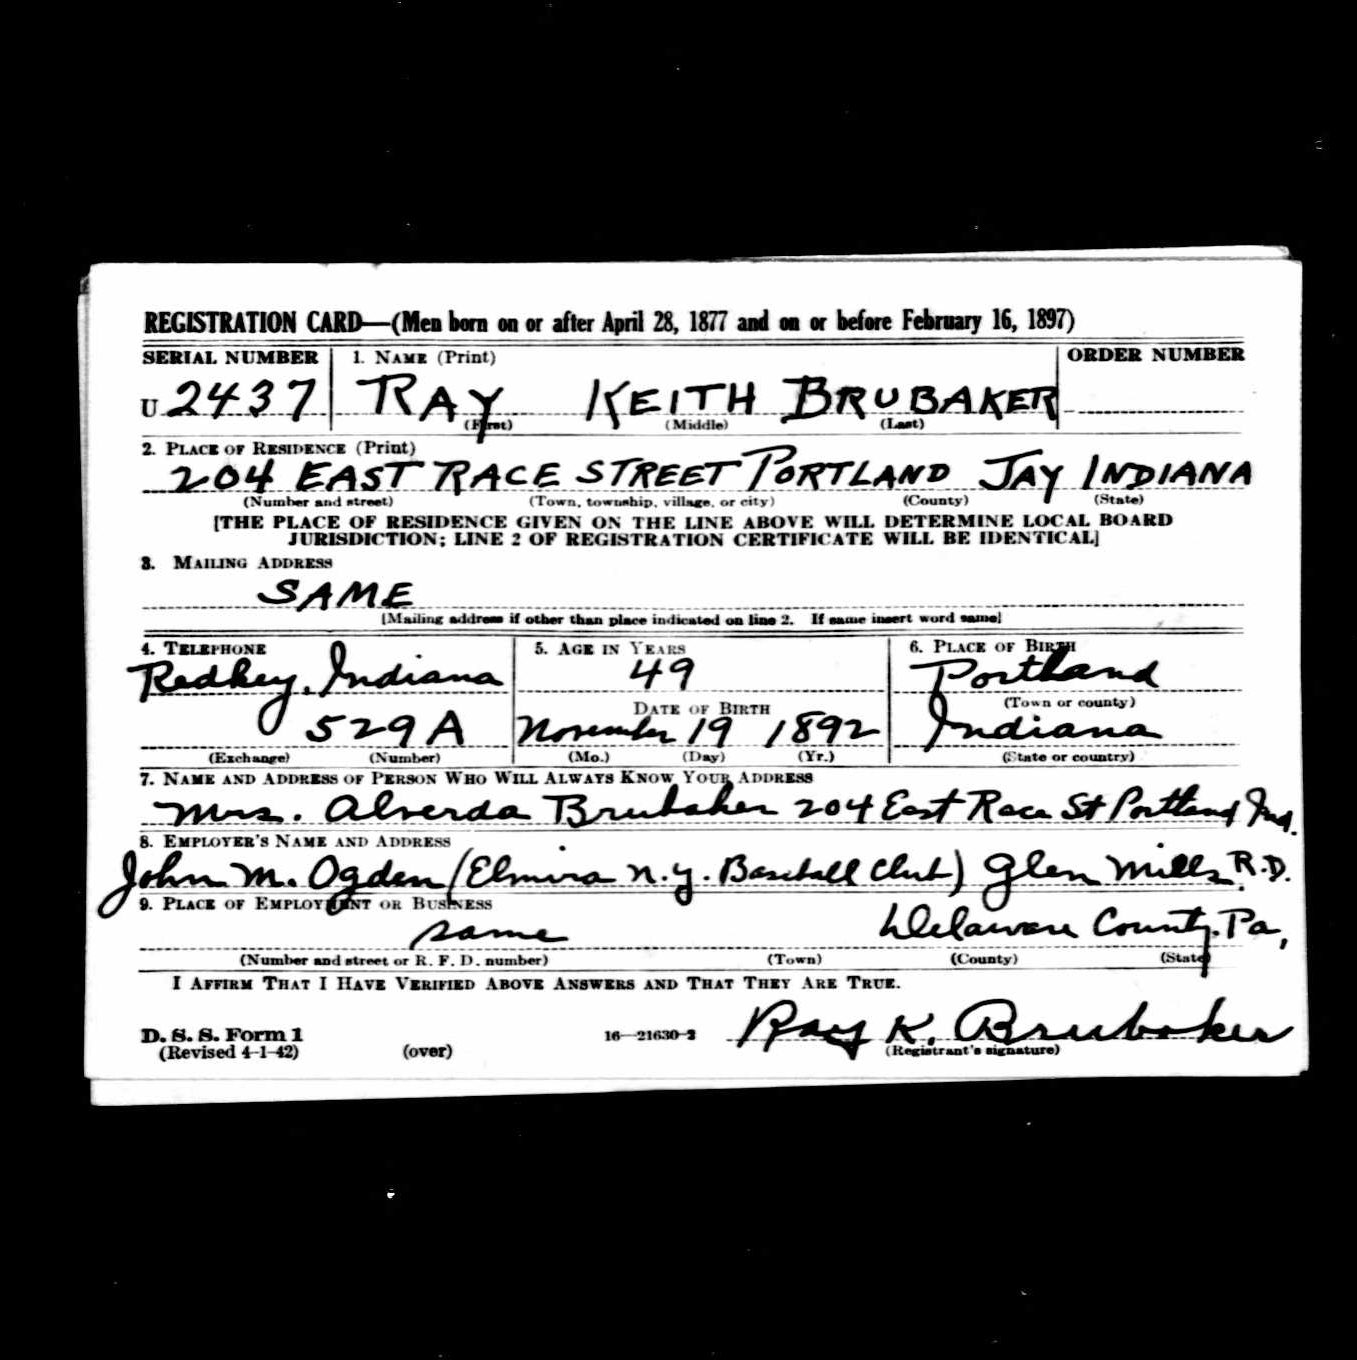 REGISTRATION CARD—(Men born on or after April 28, 1877 and on or before February 16, 1897)
SERIAL NUMBER 1. NAME (Print) ORDER NUMBER
U 2437 RAY KEITH BRUBAKER
(First) (Middle) (Last)
2. PLACE OF RESIDENCE (Print)
204 EAST RACE STREET PORTLAND JAY INDIANA
(Number and street) (Town, township, village, or city) (County) (State)
[THE PLACE OF RESIDENCE GIVEN ON THE LINE ABOVE WILL DETERMINE LOCAL BOARD
JURISDICTION; LINE 2 OF REGISTRATION CERTIFICATE WILL BE IDENTICAL]
3. MAILING ADDRESS
SAME
[Mailing address if other than place indicated on line 2. If same insert word same]
4. TELEPHONE 5. AGE IN YEARS 6. PLACE OF BIRTH
Redkey, Indiana 49 Portland
DATE OF BIRTH (Town or county)
529A November 19 1892 Indiana
(Exchange) (Number) (Mo.) (Day) (Yr.) (State or country)
7. NAME AND ADDRESS OF PERSON WHO WILL ALWAYS KNOW YOUR ADDRESS
Mrs. Alverda Brubaker 204 East Race St Portland Ind.
8. EMPLOYER'S NAME AND ADDRESS
John M. Ogden (Elmira N.Y. Baseball Club) Glen Mills R.D.
9. PLACE OF EMPLOYMENT OR BUSINESS
same Delaware County, Pa,
(Number and street or R. F. D. number) (Town) (County) (State)
I AFFIRM THAT I HAVE VERIFIED ABOVE ANSWERS AND THAT THEY ARE TRUE.
D. S. S. Form 1 16—21630-2 Ray K. Brubaker
(Revised 4-1-42) (over) (Registrant's signature)